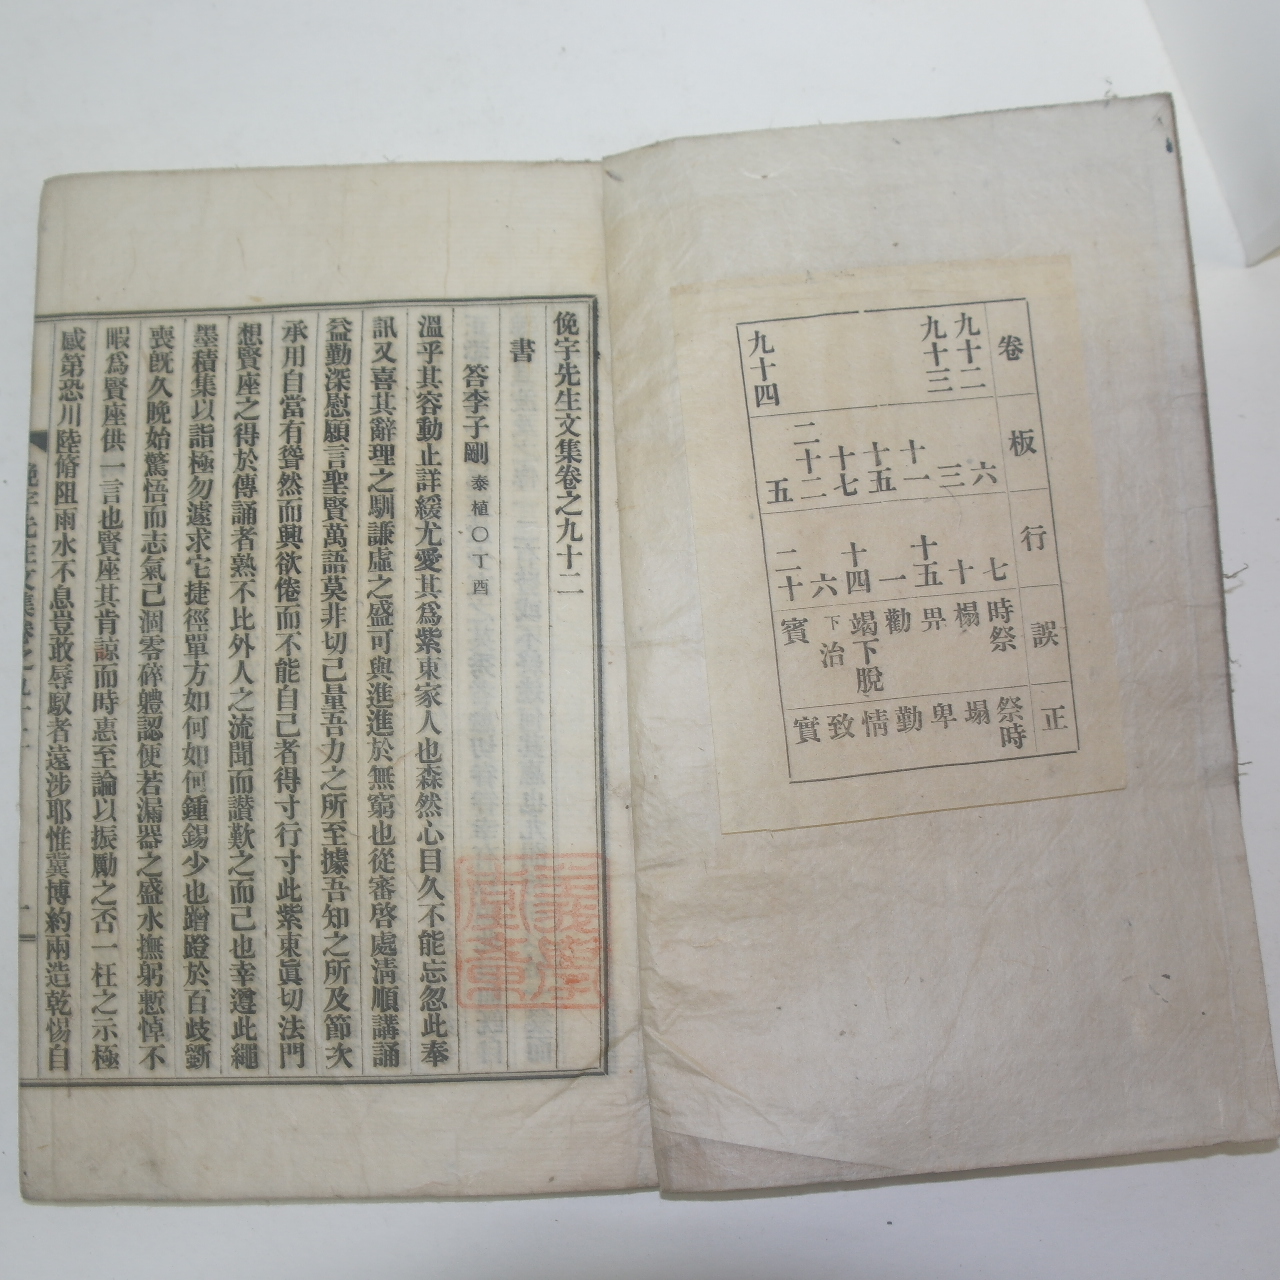 卷 板 行 誤 正
九十二 六 七 時祭 祭時
九十三 三 十 榻 塌
十一 十五 畀 卑
十五 一 勸 勤
十七 十四 竭下脫 情
二十二 六 下治 致
九十四 五 二十 賓 實
俛宇先生文集卷之九十二
書
答李子剛 泰植○丁酉
溫乎其容動止詳緩尤愛其爲紫東家人也森然心目久不能忘忽此奉
訊又喜其辭理之馴謙虛之盛可與進進於無窮也從審啓處淸順講誦
益勤深慰願言聖賢萬語莫非切己量吾力之所至據吾知之所及節次
承用自當有聳然而興欲倦而不能自己者得寸行寸此紫東眞切法門
想賢座之得於傳誦者熟不比外人之流聞而讚歎之而己也幸遵此繩
墨積集以詣極勿遽求它捷徑單方如何如何鍾錫少也蹭蹬於百歧斵
喪旣久晩始驚悟而志氣己涸零碎軆認便若漏器之盛水撫躬慙悼不
暇爲賢座供一言也賢座其肯諒而時惠至論以振勵之否一枉之示極
感第恐川陸脩阻雨水不息豈敢辱馭者遠涉耶惟冀博約兩造乾惕自
俛宇先生文集卷之九十二 一